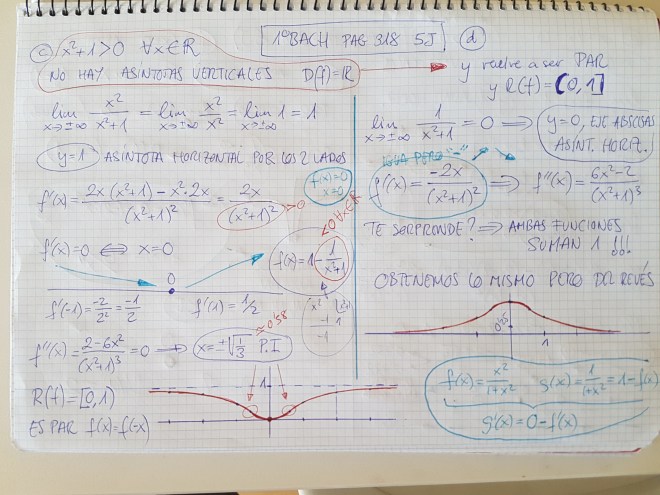 1ºBACH PAG 318 5J
c) x²+1>0 ∀x∈ℝ
NO HAY ASÍNTOTAS VERTICALES D(f)=ℝ
lim x→±∞ x²/(x²+1) = lim x→±∞ x²/x² = lim x→±∞ 1 = 1
y=1 ASÍNTOTA HORIZONTAL POR LOS 2 LADOS
f'(x) = (2x(x²+1) - x²·2x)/(x²+1)² = 2x/(x²+1)² >0
f(x)=0
x=0
f'(x)=0 ⟺ x=0
0
<0 ∀x∈ℝ
f(x)=1-1/(x²+1)
x²
-1 1
-1
f'(-1) = -2/2² = -1/2 f'(1) = 1/2
≈0'58
f''(x) = (2-6x²)/(x²+1)³ = 0 → x=±√(1/3) P.I
R(f)=[0,1)
ES PAR f(x)=f(-x)
1
d)
y vuelve a ser PAR
y R(f) = (0,1]
lim x→±∞ 1/(x²+1) = 0 ⟹ y=0, EJE ABSCISAS
ASÍNT. HORIZ.
IGUAL PERO "-"
f'(x) = -2x/(x²+1)² ⟹ f''(x) = (6x²-2)/(x²+1)³
TE SORPRENDE? ⟹ AMBAS FUNCIONES
SUMAN 1 !!!
OBTENEMOS LO MISMO PERO DEL REVÉS
1
f(x) = x²/(1+x²) g(x) = 1/(1+x²) = 1-f(x)
g'(x) = 0-f'(x)